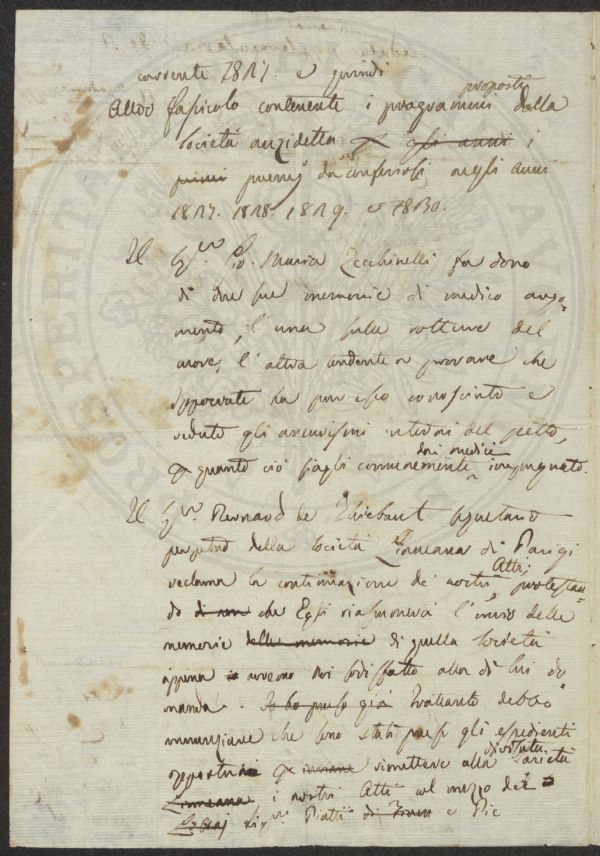 corrente 1827. e quindi
proposti
Altro fascicolo contenente i programmi dalla
Società anzidetta gli anni i
primi premj da conferirsi negli anni
1827. 1828. 1829. e 1830.
Il Sig.r G. Maria Zecchinelli fa dono
di due sue memorie di medico argo-
mento, l'una sulle rotture del
cuore, l'altra tendente a provare che
Ippocrate ha pur esso conosciuto e
veduto gli aneurismi interni del petto,
quanto ciò siagli comunemente dai medici impugnato.
Il Sig.r Thiebaut Segretario
perpetuo della Società Linneana di Parigi
reclama la continuazione de' nostri Atti, protestan-
do che Egli l'invio delle
memorie delle memorie di quella Società
appena avremo noi soddisfatto alla di lui do-
manda. Io ho preso già Frattanto debbo
annunziare che sono stati presi gli espedienti
opportuni inviare rimettere alla Società
Linneana i nostri Atti col mezzo dei
Sig.ri Piatti e Pic